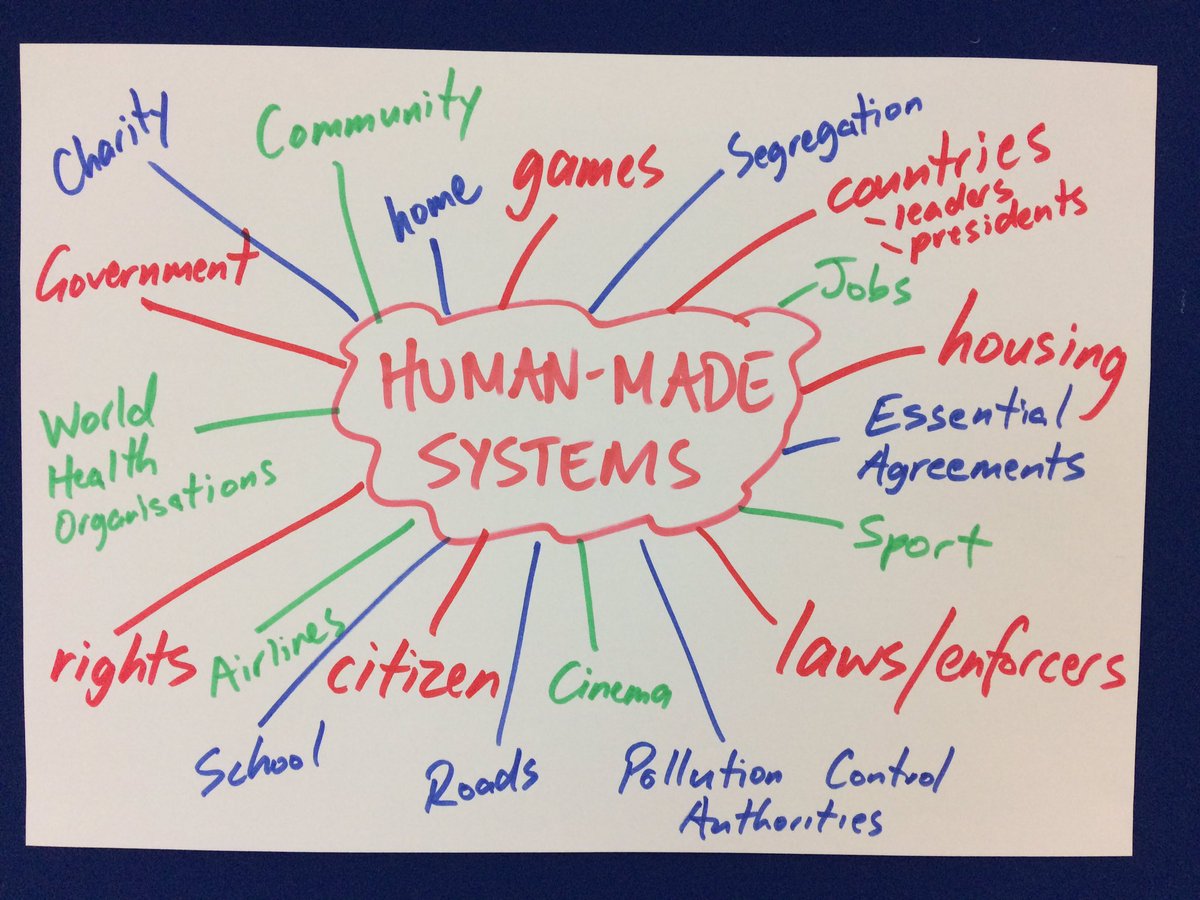 Charity
Community
home
games
Segregation
countries
- leaders
- presidents
Government
Jobs
housing
HUMAN-MADE
SYSTEMS
World
Health
Organisations
Essential
Agreements
Sport
rights
Airlines
citizen
Cinema
laws/enforcers
School
Roads
Pollution Control
Authorities